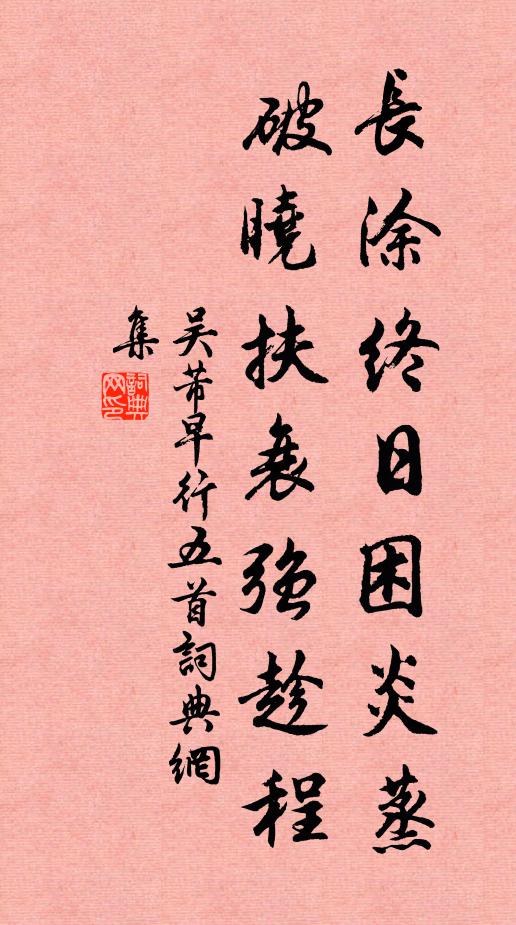 長涂終日困炎蒸
破曉扶衰強趁程
吴芾早行五首詞典網
集
詞典
网印